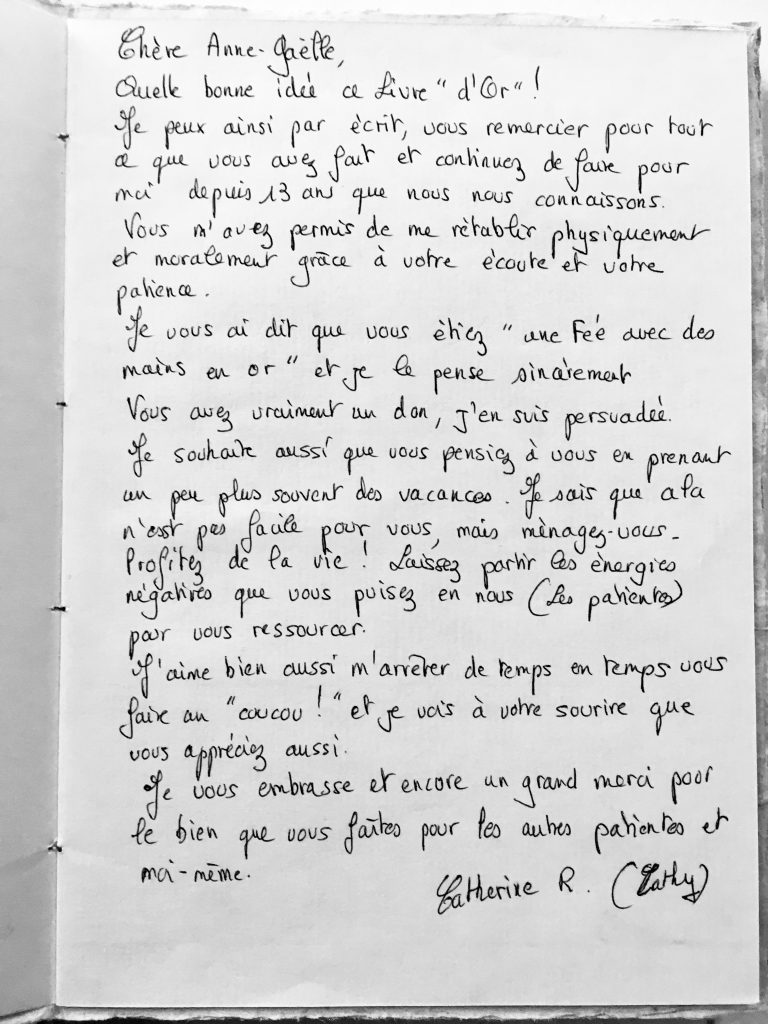 Chère Anne-Gaëlle,
Quelle bonne idée ce Livre "d'Or" !
Je peux ainsi par écrit, vous remercier pour tout
ce que vous avez fait et continuez de faire pour
moi depuis 13 ans que nous nous connaissons.
Vous m'avez permis de me rétablir physiquement
et moralement grâce à votre écoute et votre
patience.
Je vous ai dit que vous étiez "une Feé avec des
mains en or" et je le pense sincèrement
Vous avez vraiment un don, j'en suis persuadée.
Je souhaite aussi que vous pensiez à vous en prenant
un peu plus souvent des vacances. Je sais que cela
n'est pas facile pour vous, mais ménagez-vous_
Profitez de la vie ! Laissez partir les énergies
négatives que vous puisez en nous (Les patientes)
pour vous ressourcer.
J'aime bien aussi m'arrêter de temps en temps vous
faire un "coucou !" et je vois à votre sourire que
vous appréciez aussi.
Je vous embrasse et encore un grand merci pour
le bien que vous faîtes pour les autres patientes et
moi-même.
Catherine R. (Cathy)